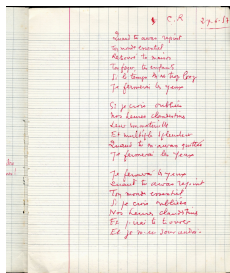 C.R
Quand tu auras rejoint
Ton monde essentiel
Retrouvé ta maison
Ton foyer, tes enfants
Si le temps m'est trop long
Je fermerai les yeux
Si je crois oubliées
Nos heures clandestines
Leur
Et multiple splendeur
Quand tu m'auras quittée
Je fermerai les yeux
Je fermerai les yeux
Quand tu auras rejoint
Ton monde essentiel
Si je crois oubliées
Nos heures clandestines
Et j'irai te trouver
Et je m'en souviendrai.